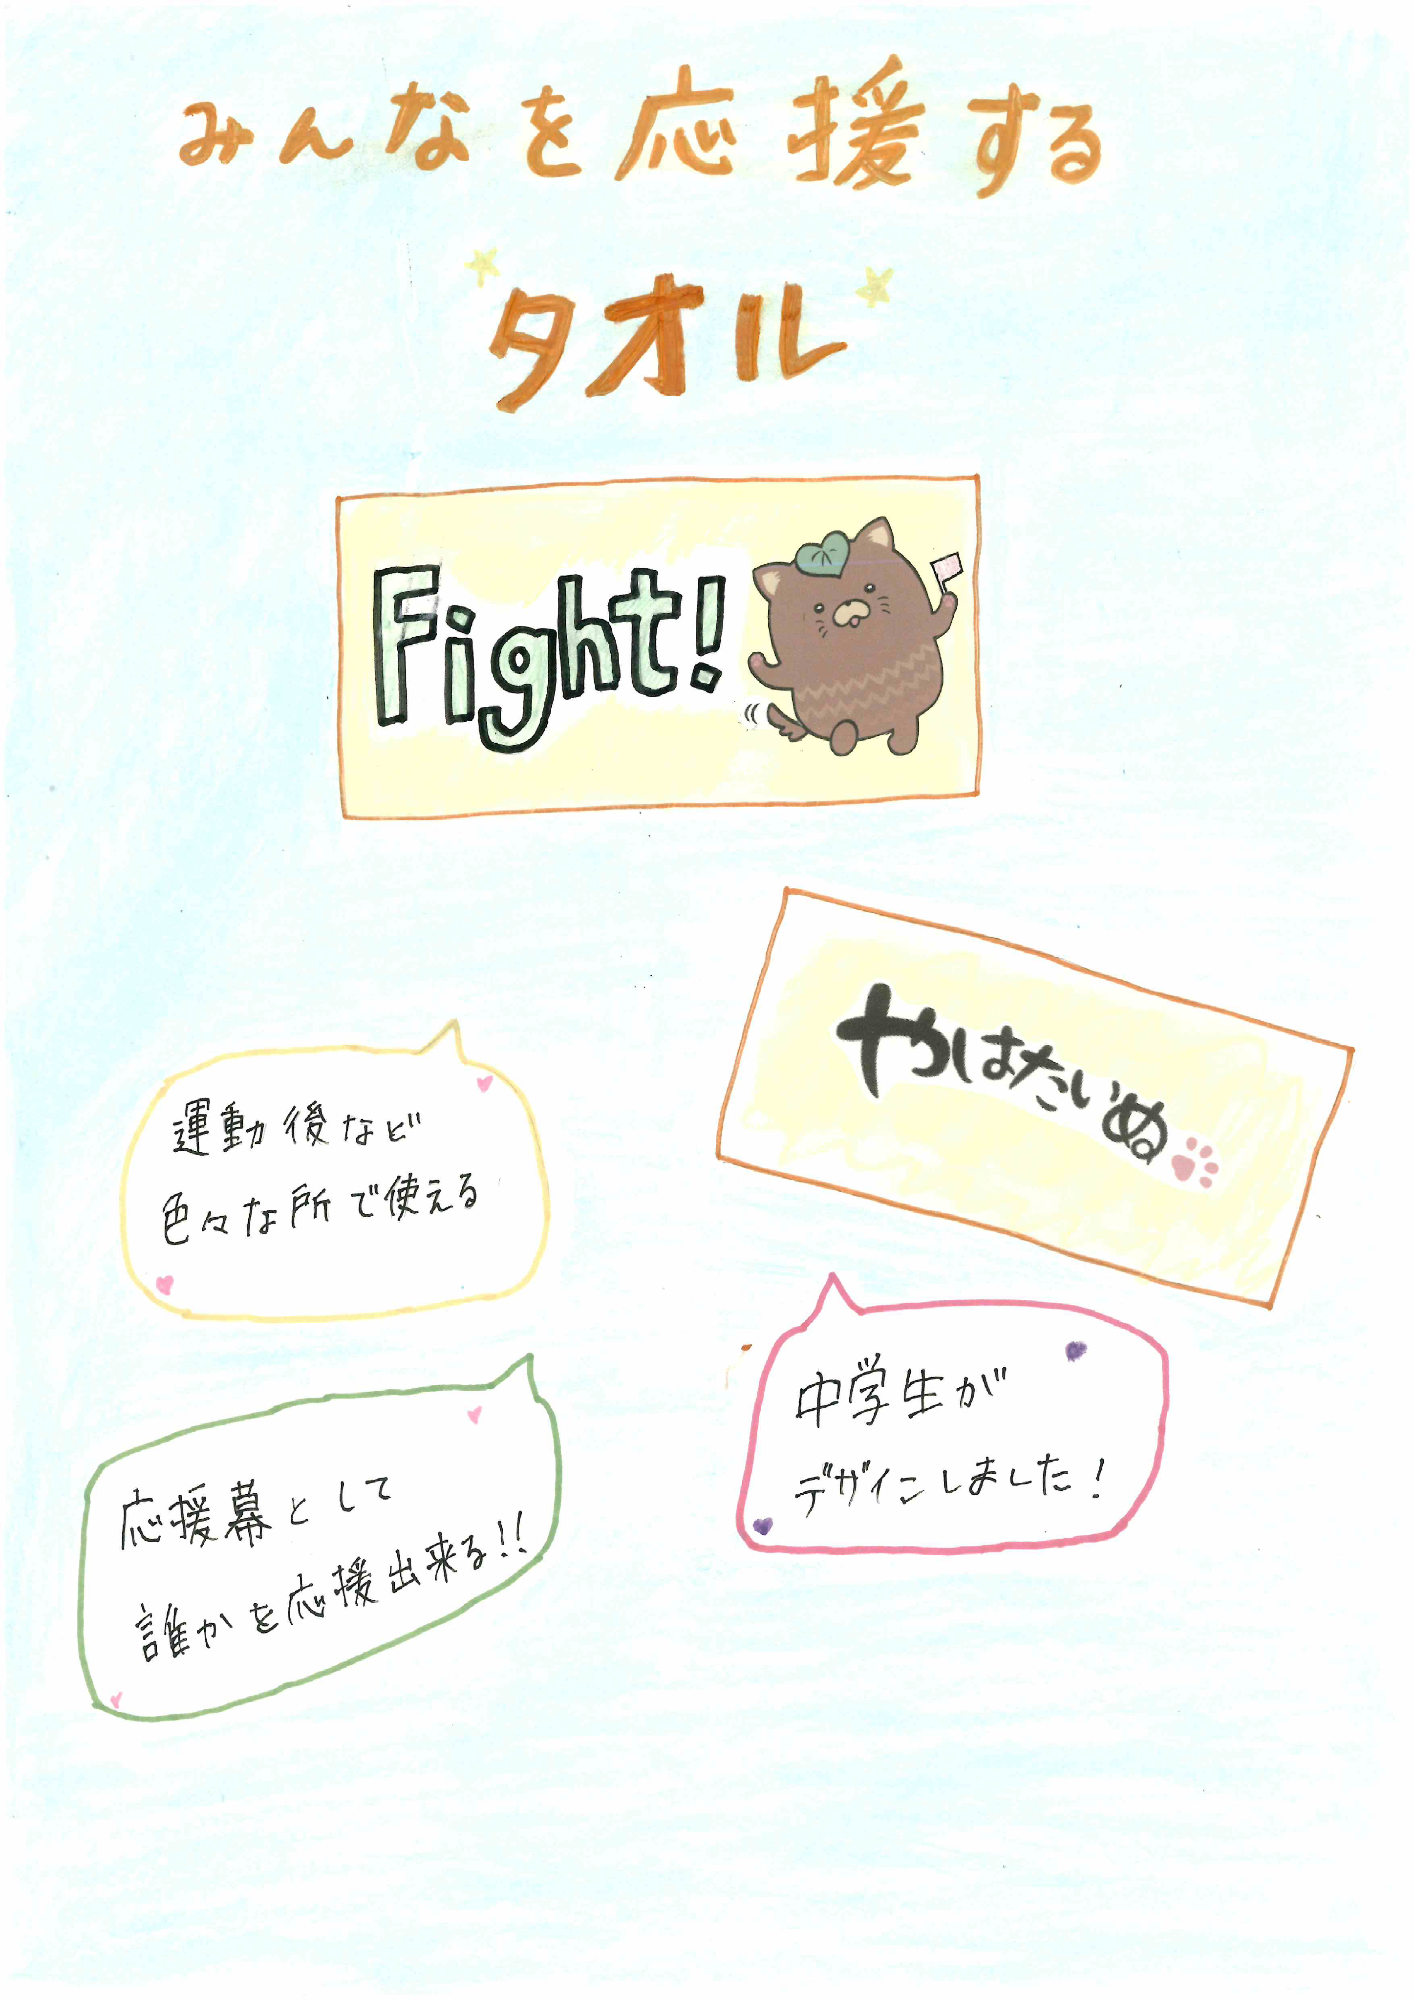 みんなを応援する
タオル
Fight!
やはたいぬ
運動後など
色々な所で使える
中学生が
デザインしました!
応援幕として
誰かを応援出来る!!